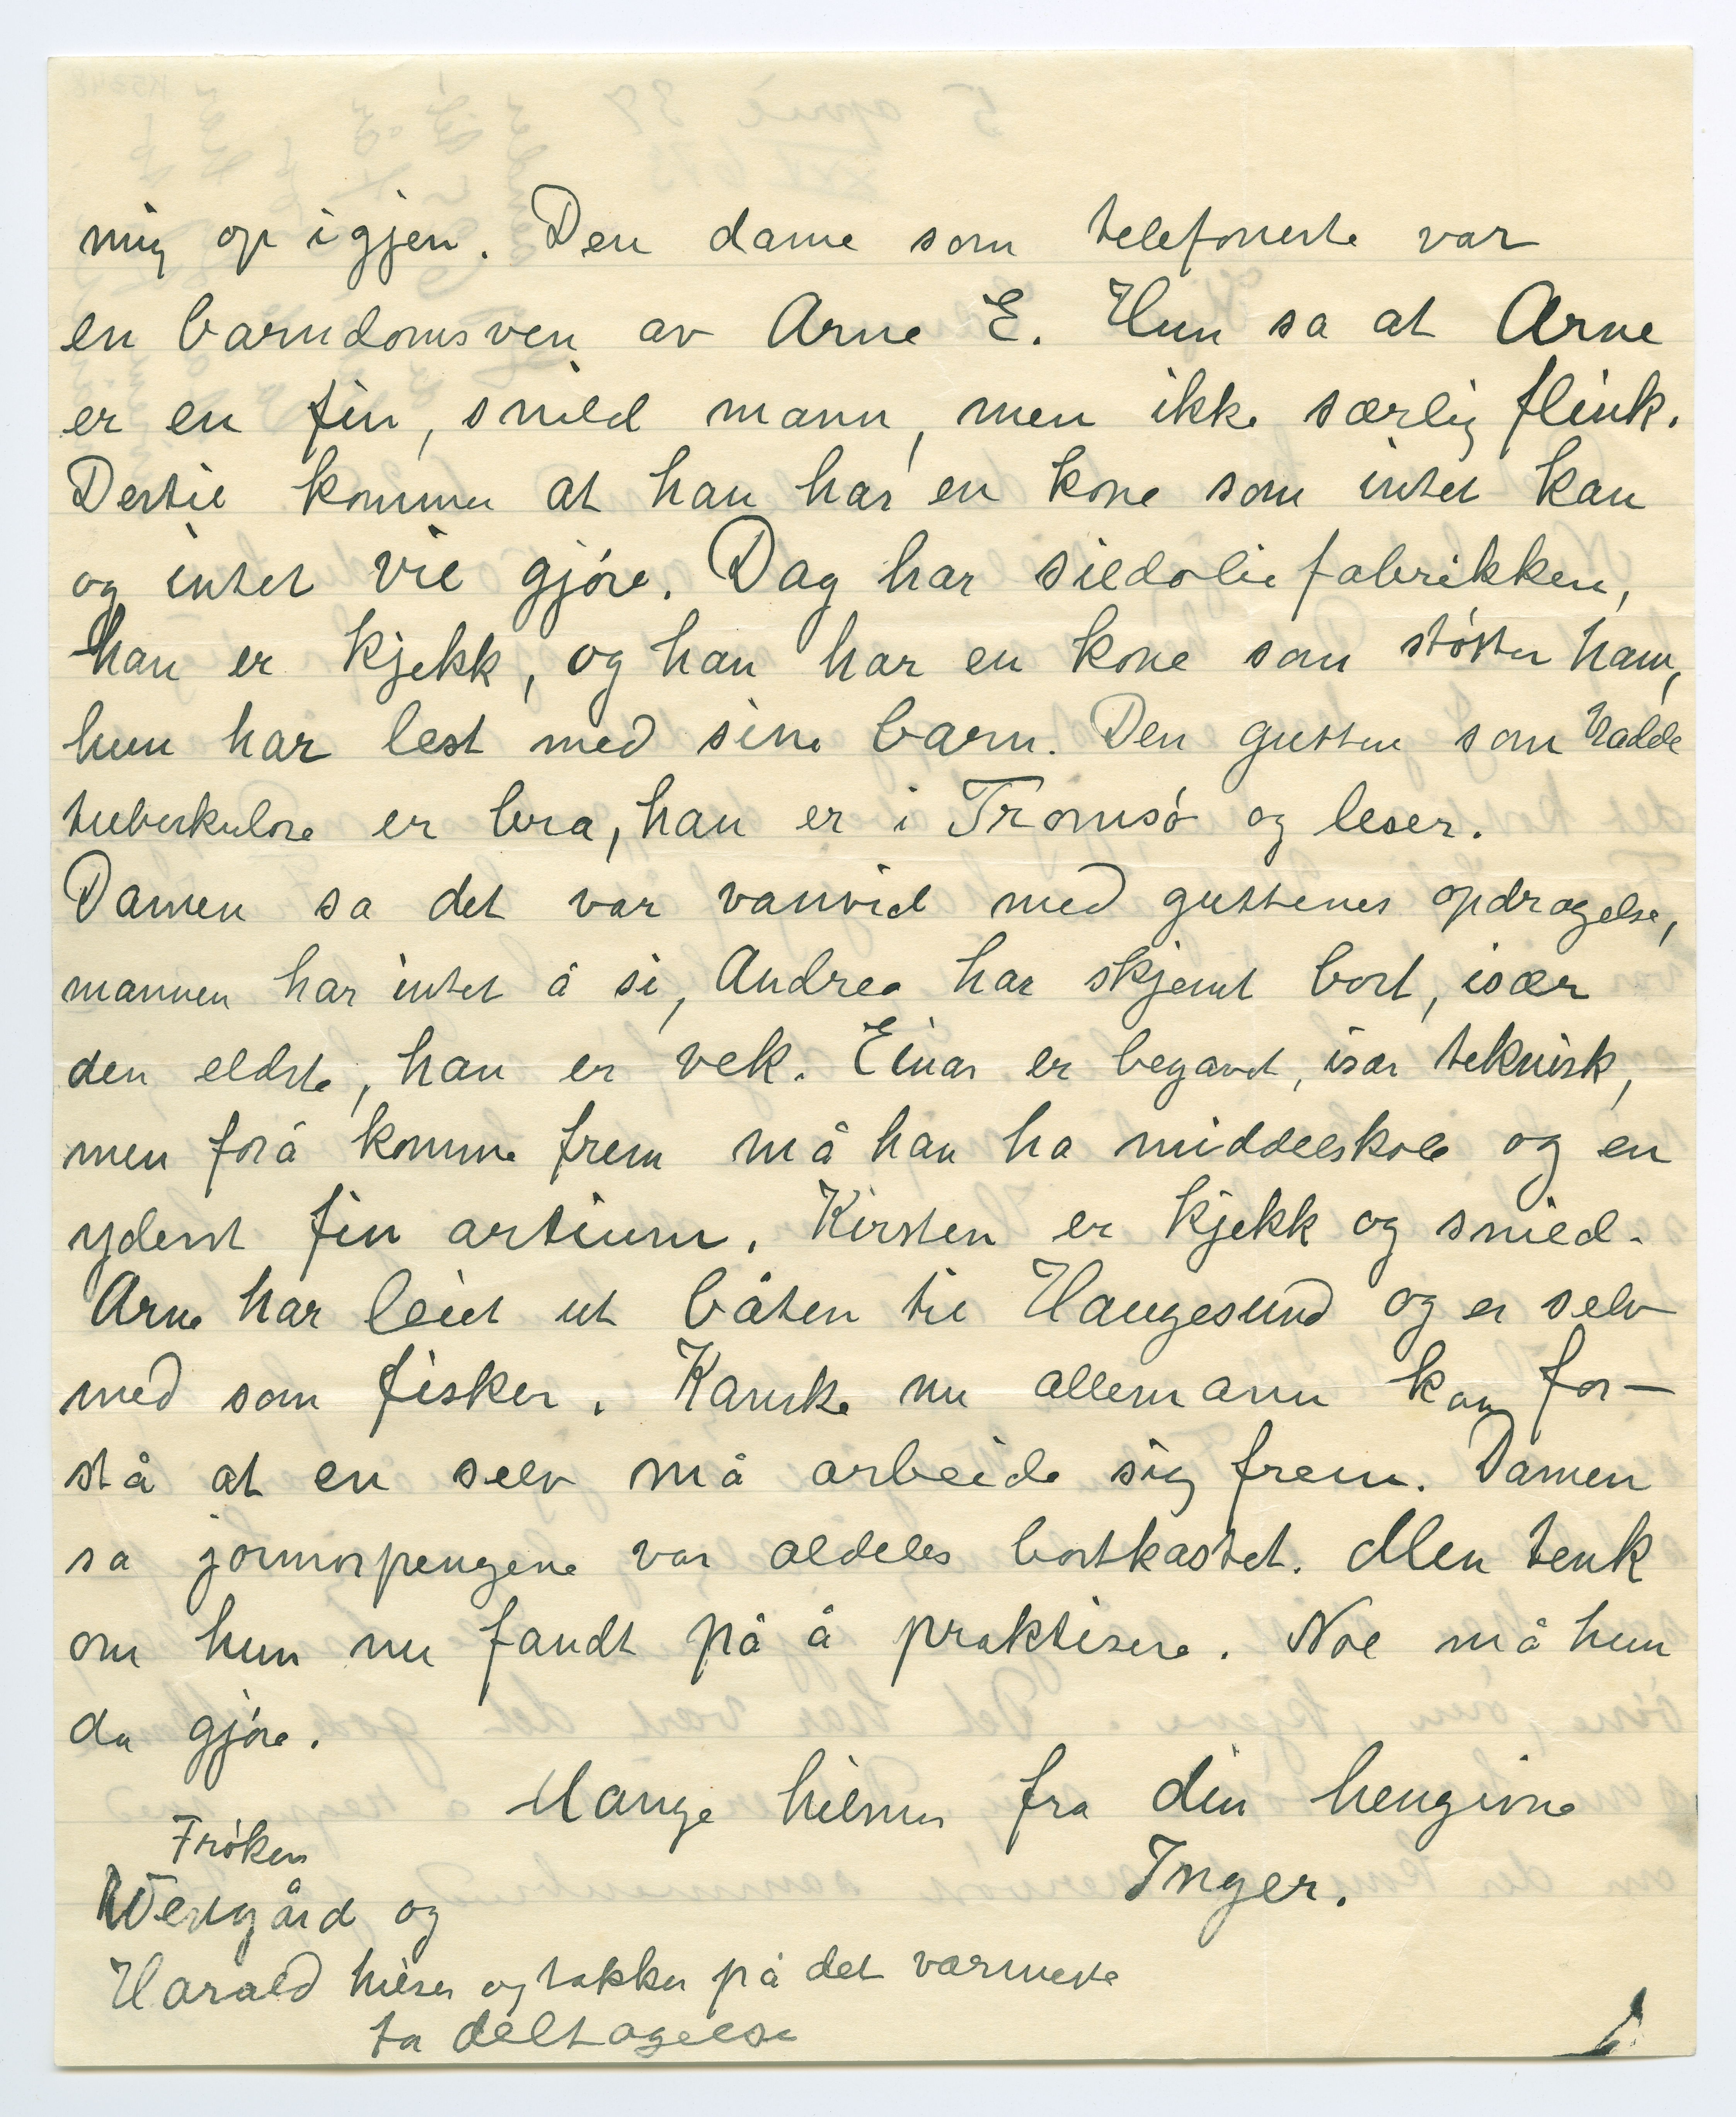 mig op igjen. Den dame som telefonerte var
en barndomsven av Arne E. Hun sa at Arne
er en fin, snild mann, men ikke særlig flink.
Dertil kommer at han har en kone som intet kan
og intet vil gjøre. Dag har sildoliefabrikken,
han er kjekk, og han har en kone som støtter ham,
hun har lest med sine barn. Den gutten som hadde
tuberkulose er bra, han er i Tromsø og leser.
Damen sa det var vanvid med guttenes opdragelse,
mannen har intet å si, Andrea har skjemt bort, især
den eldste, han er vek. Einar er begavet, især teknisk,
men forå komme frem må han ha middelskole og en
yderst fin artium. Kirsten er kjekk og snild.
Arne har leiet ut båten til Haugesund og er selv
med som fisker. Kanske nu allemann kan for-
stå at en selv må arbeide sig frem. Damen
sa jormorpengene var aldeles bortkastet. Men tenk
om hun nu fandt på å praktisere. Noe må hun
da gjøre.
Mange hilsner fra din hengivne
Inger.
Frøken
Vestgård og
Harald hilser og takker på det varmeste
fa deltagelse